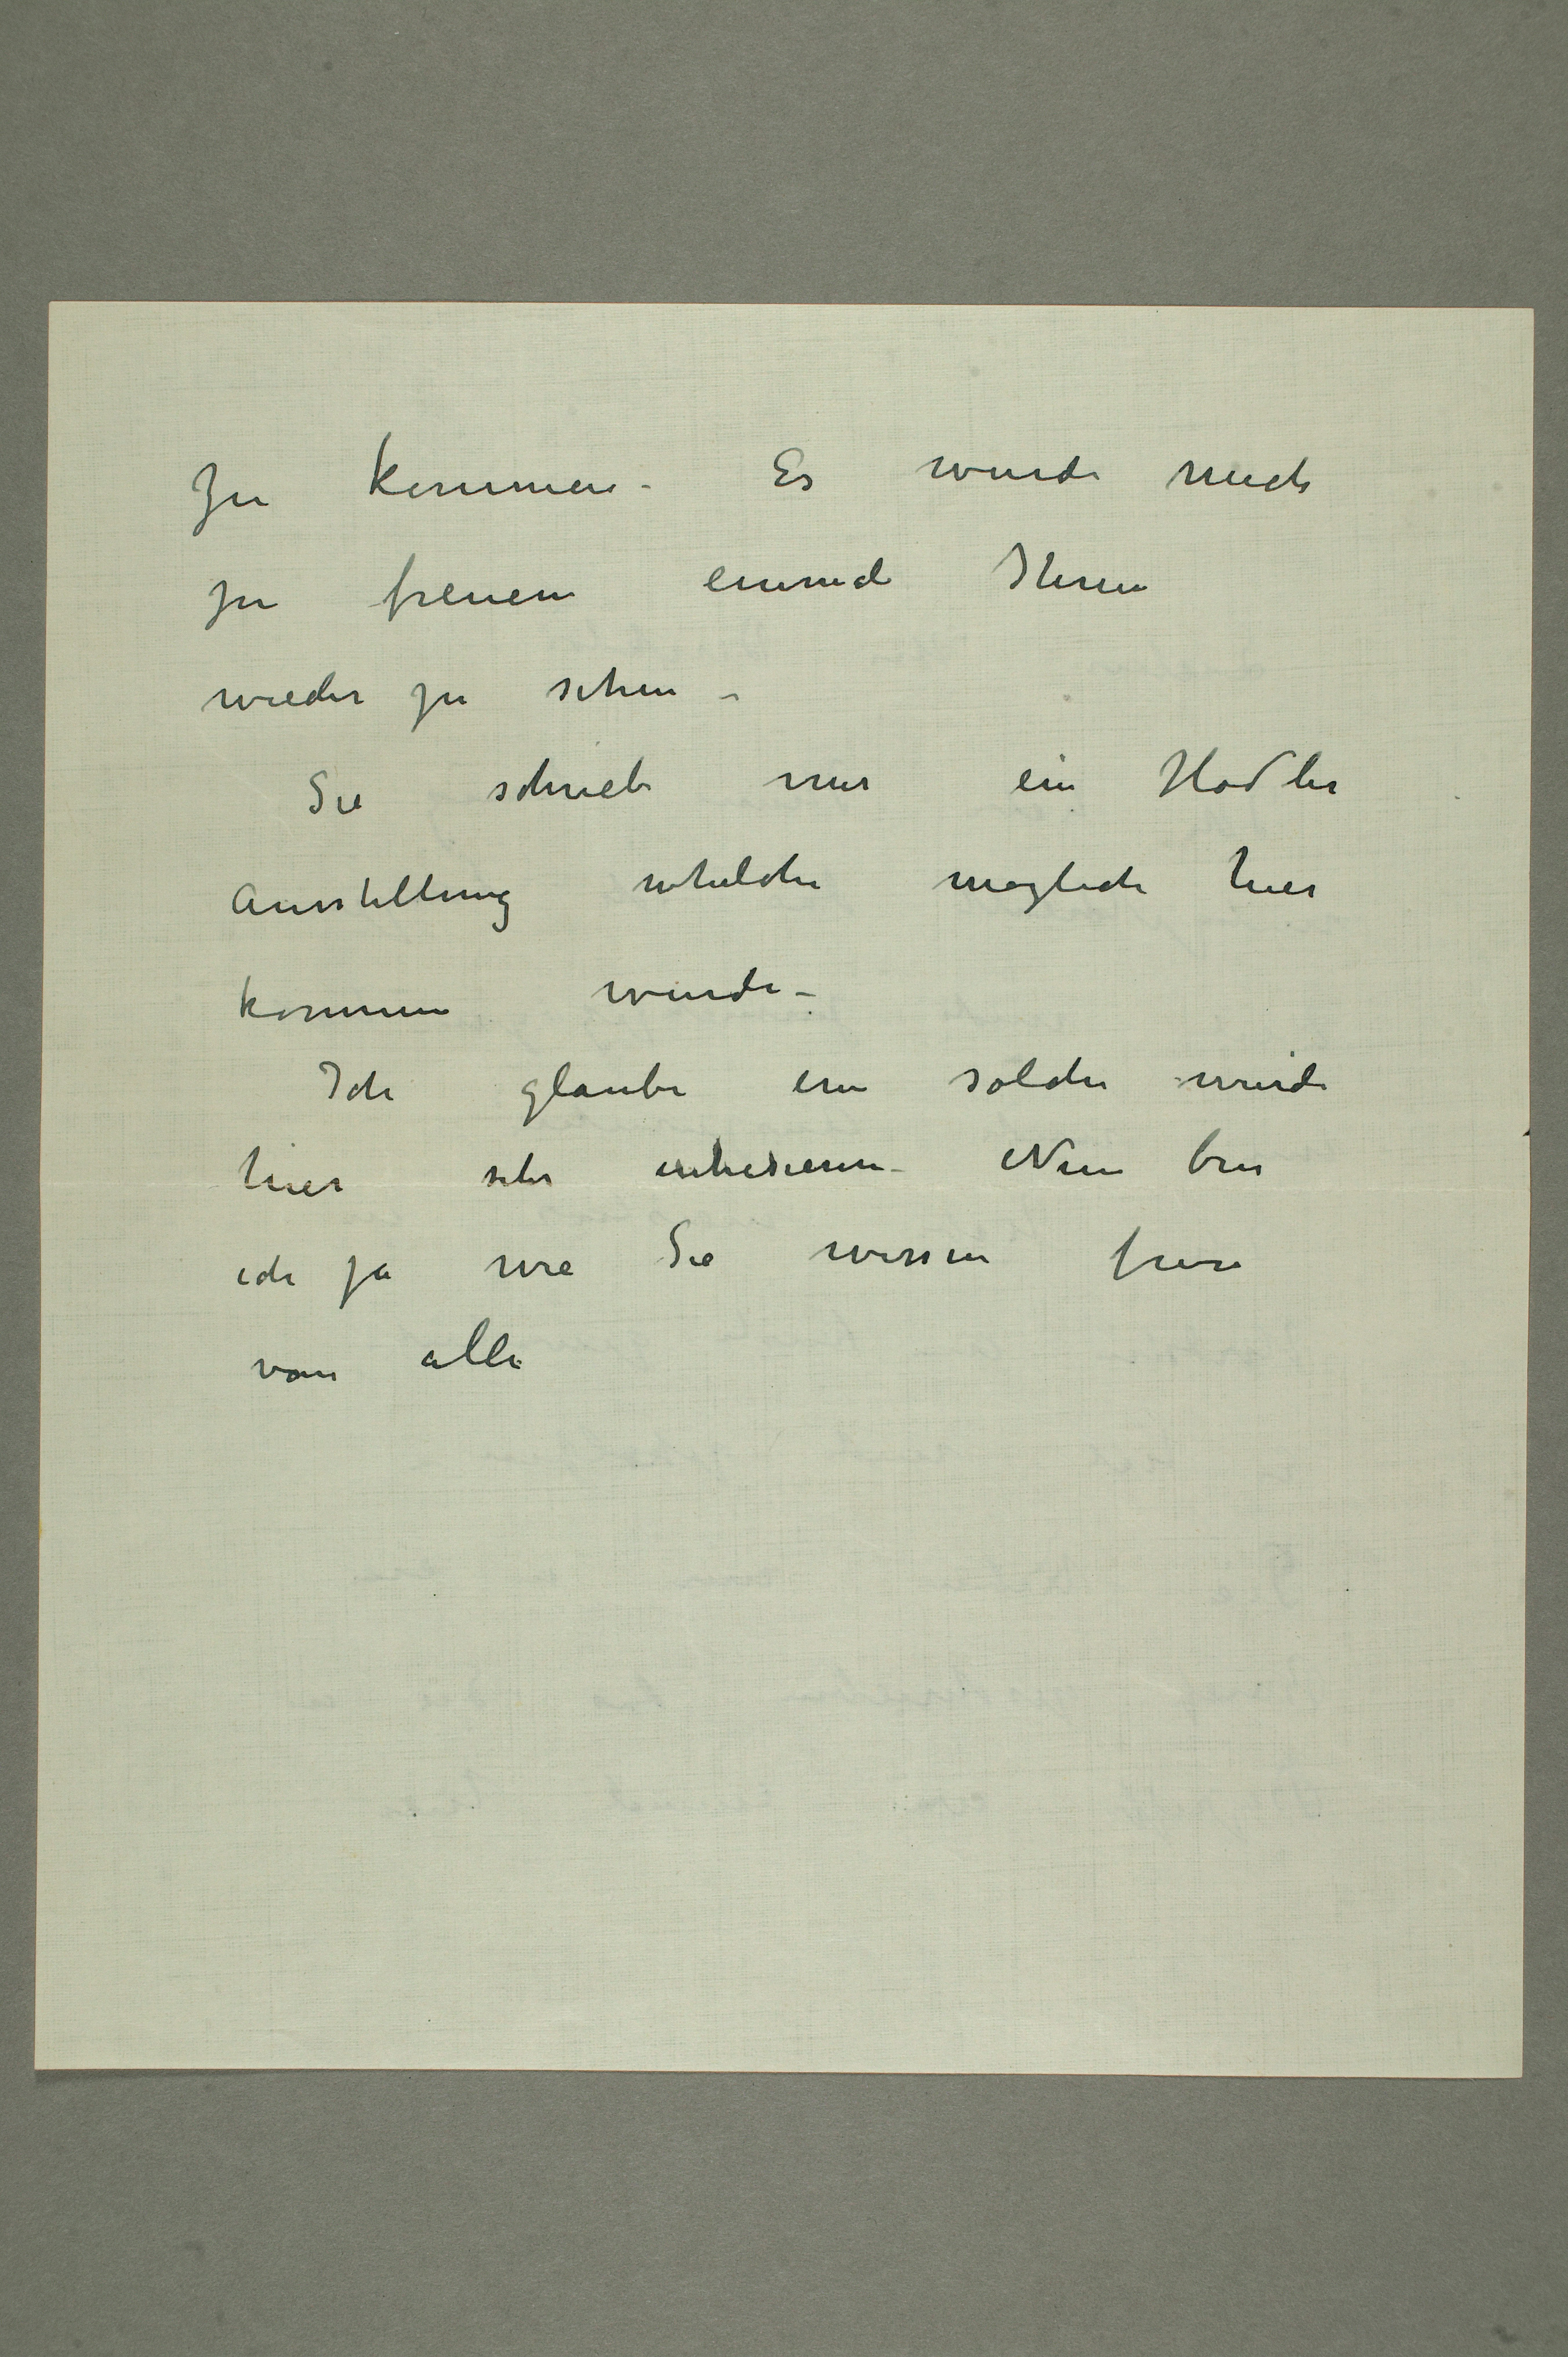 zu kommen – Es wurde mich
zu freuen einmal Ihnen
wieder zu sehen –
Sie schrieb mir ein Hodler
Ausstellung whelche moglich hier
kommen wurde –
Ich glaube ein solche wurde
hier sehr interesieren – Nun bin
ich ja wie Sie wissen
von alle